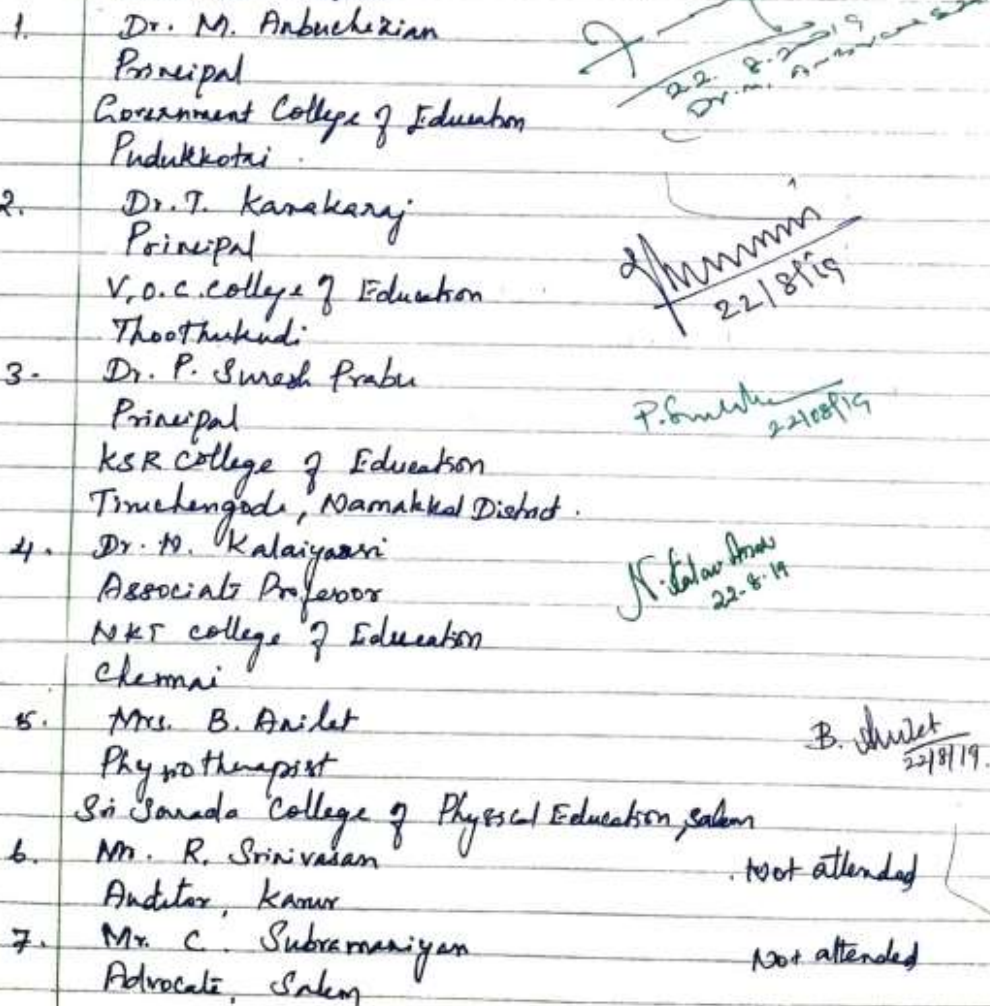 1. Dr. M. Anbuchezian
Principal
Government College of Education
Pudukkotai.
22.8.2019
Dr. M.
2. Dr. T. Kanakaraj
Principal
V.O.C. College of Education
Thoothukudi
22/8/19
3. Dr. P. Suresh Prabu
Principal
KSR College of Education
Tiruchengode, Namakkal District.
P.
22/08/19
4. Dr. N. Kalaiyarasi
Associate Professor
NKT College of Education
Chennai
N.
22.8.19
5. Mrs. B. Anilet
Physiotherapist
Sri Sarada College of Physical Education, Salem
B. Anilet
22/8/19.
6. Mr. R. Srinivasan
Auditor, Karur
Not attended
7. Mr. C. Subramaniyan
Advocate, Salem
Not attended